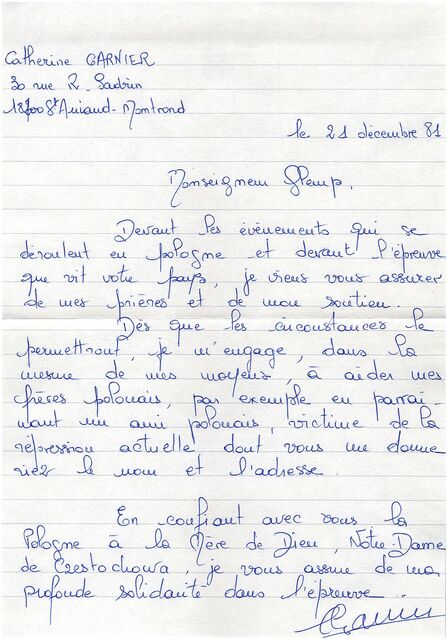 Catherine GARNIER
30 rue R. Sadrin
18200 St Amand-Montrond
le 21 décembre 81
Monseigneur Glemp,
Devant les évènements qui se
déroulent en pologne et devant l'épreuve
que vit votre pays, je viens vous assurer
de mes prières et de mon soutien.
Dès que les circonstances le
permettront, je m'engage, dans la
mesure de mes moyens, à aider mes
frères polonais, par exemple en parrai-
nant un ami polonais, victime de la
répression actuelle dont vous me donne
riez le nom et l'adresse.
En confiant avec vous la
Pologne à la Mère de Dieu, Notre-Dame
de Czestochowa, je vous assure de ma
profonde solidarité dans l'épreuve.